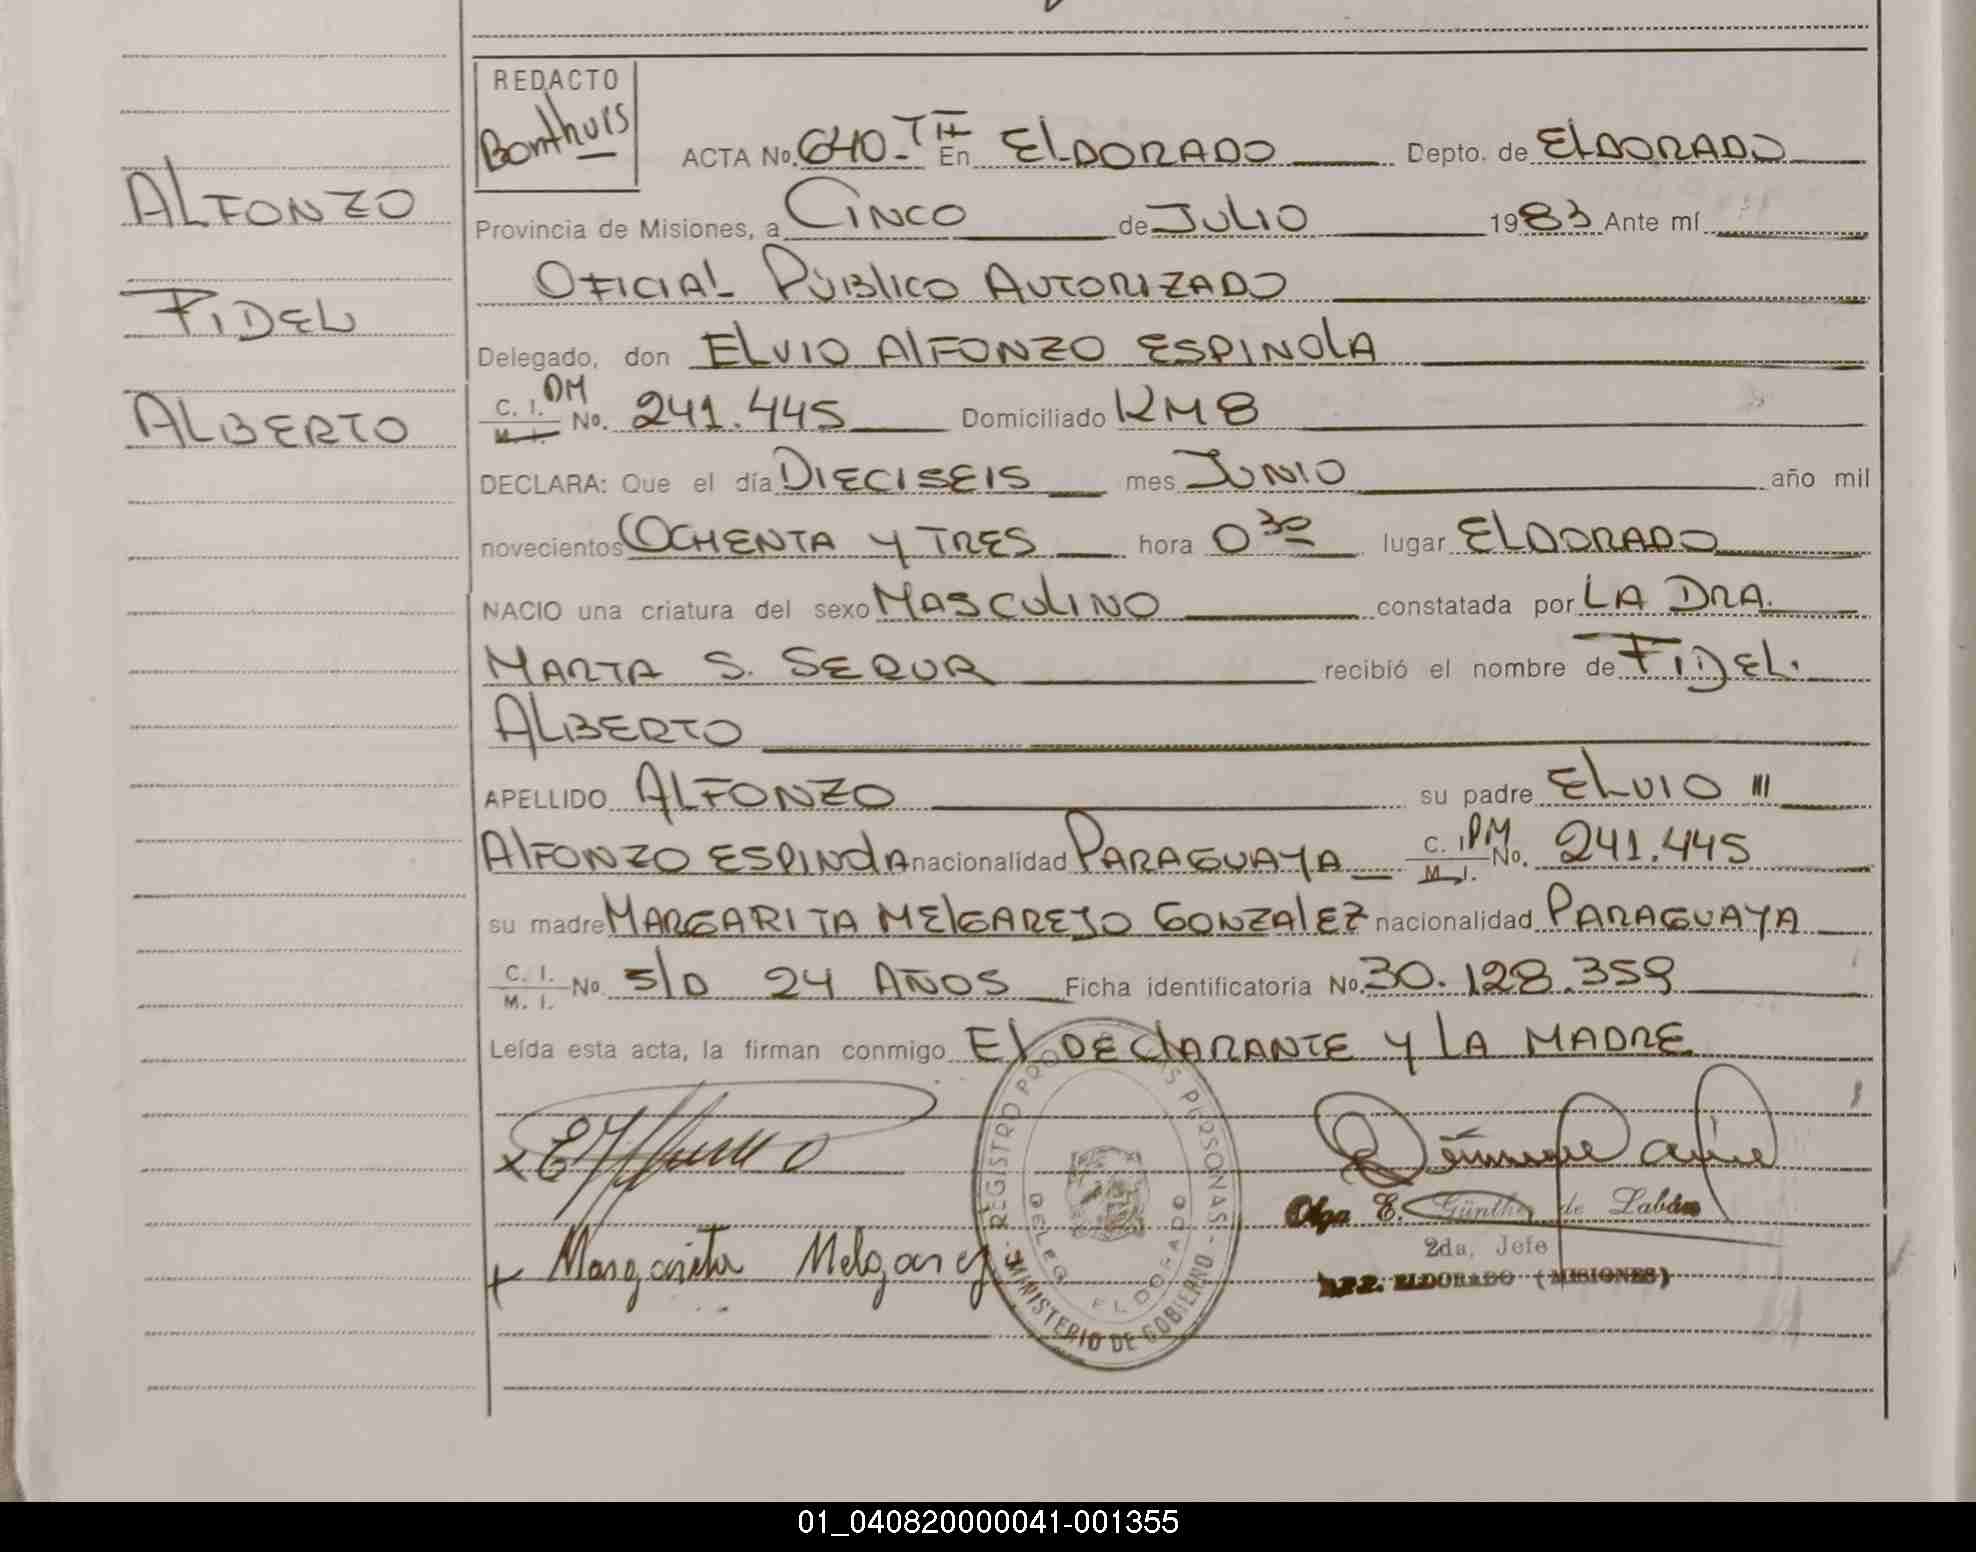 REDACTO
Bonthuis
ALFONZO
FIDEL
ALBERTO
ACTA No. 640-TII En ELDORADO Depto. de ELDORADO
Provincia de Misiones, a CINCO de JULIO 1983 Ante mí
OFICIAL PÚBLICO AUTORIZADO
Delegado, don ELVIO ALFONZO ESPINOLA
C. I. DM
M. I. No. 241.445 Domiciliado KM 8
DECLARA: Que el día DIECISEIS mes JUNIO año mil
novecientos OCHENTA Y TRES hora 0 30 lugar ELDORADO
NACIO una criatura del sexo MASCULINO constatada por LA DRA.
MARTA S. SEQUR recibió el nombre de FIDEL.
ALBERTO
APELLIDO ALFONZO su padre ELVIO
ALFONZO ESPINOLA nacionalidad PARAGUAYA C. I. DM M. I. No. 241.445
su madre MARGARITA MELGAREJO GONZALEZ nacionalidad PARAGUAYA
C. I.
M. I. No. S/D 24 AÑOS Ficha identificatoria No. 30.128.359
Leída esta acta, la firman conmigo EL DECLARANTE Y LA MADRE
REGISTRO PERSONAS
DELEG. ELDORADO
MINISTERIO DE GOBIERNO
Margarita Melgarej
Olga E. Günther de Labán
2da. Jefe
R.P.P. ELDORADO (MISIONES)
01_040820000041-001355